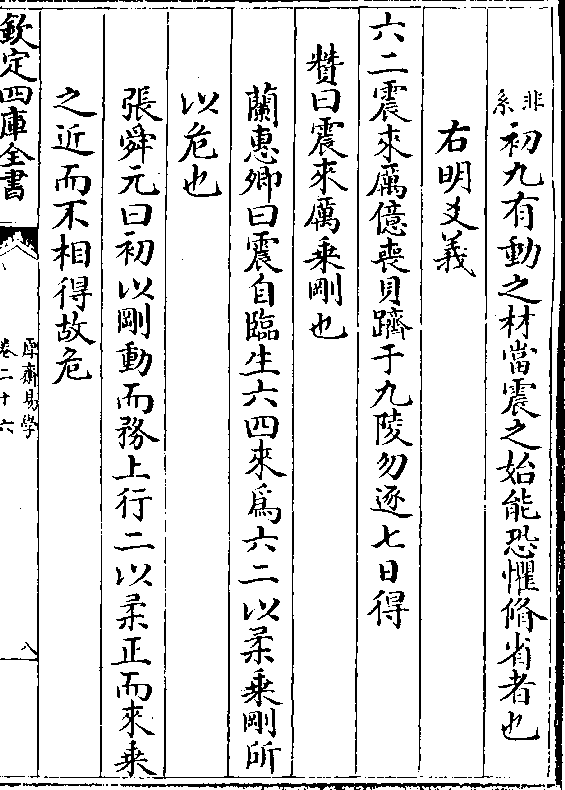 非系初九有動之材當震之始能恐懼脩省者也
右明爻義
六二震來厲億喪貝躋于九陵勿逐七日得
贊曰震來厲乘剛也
蘭惠卿曰震自臨生六四來爲六二以柔乘剛所
以危也
張舜元曰初以剛動而務上行二以柔正而來乘
之近而不相得故危
欽定四庫全書
厚齋易學
卷二十六
八